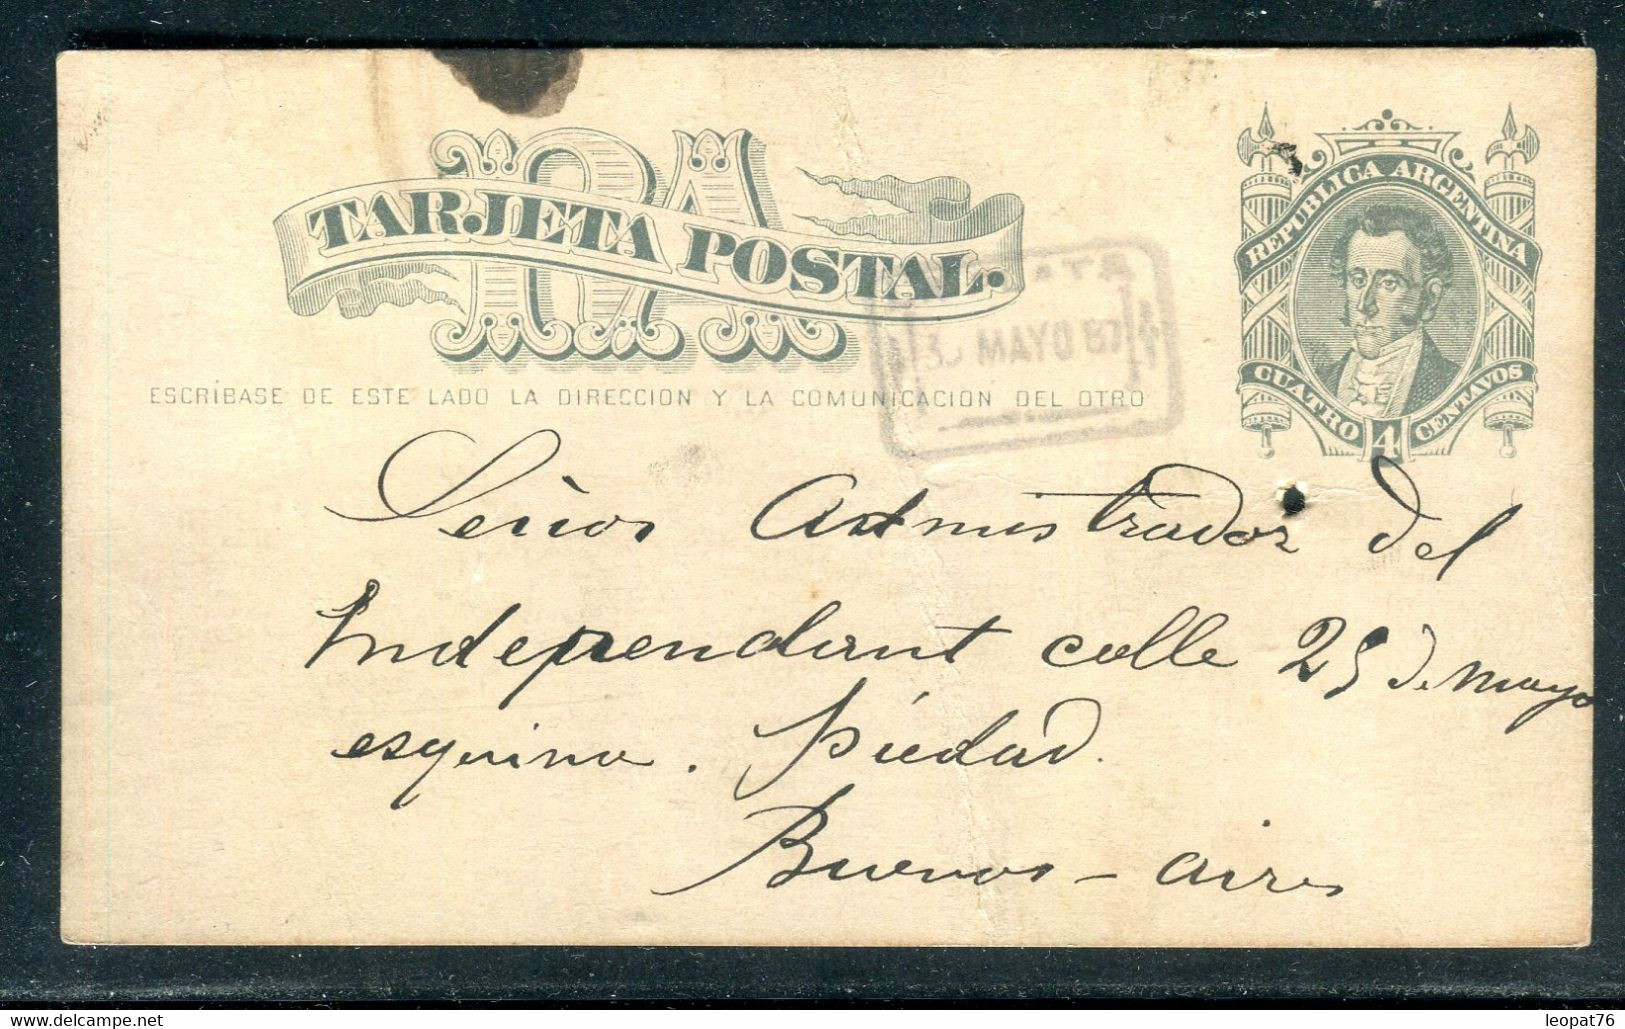 RA
TARJETA POSTAL.
REPUBLICA ARGENTINA
CUATRO 4 CENTAVOS
MAYO 87
ESCRÍBASE DE ESTE LADO LA DIRECCION Y LA COMUNICACION DEL OTRO
Señor Admistrador del
Independant calle 25 de mayo
esquina. Piedad.
Buenos-aires
www.delcampe.net
leopat76